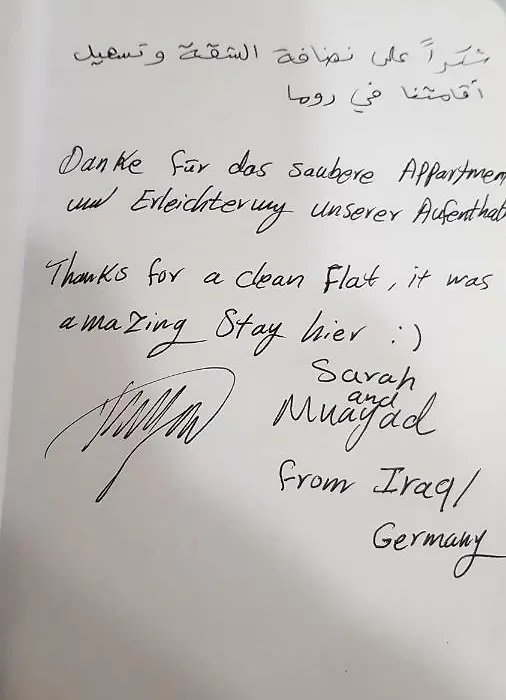 شكراً على نضافة الشقة وتسهيل
أقامتنا في روما
Danke für das saubere Appartmen
und Erleichterung unserer Aufenthalt
Thanks for a clean flat, it was
amazing Stay hier :)
Sarah
and
Muayad
from Iraq/
Germany